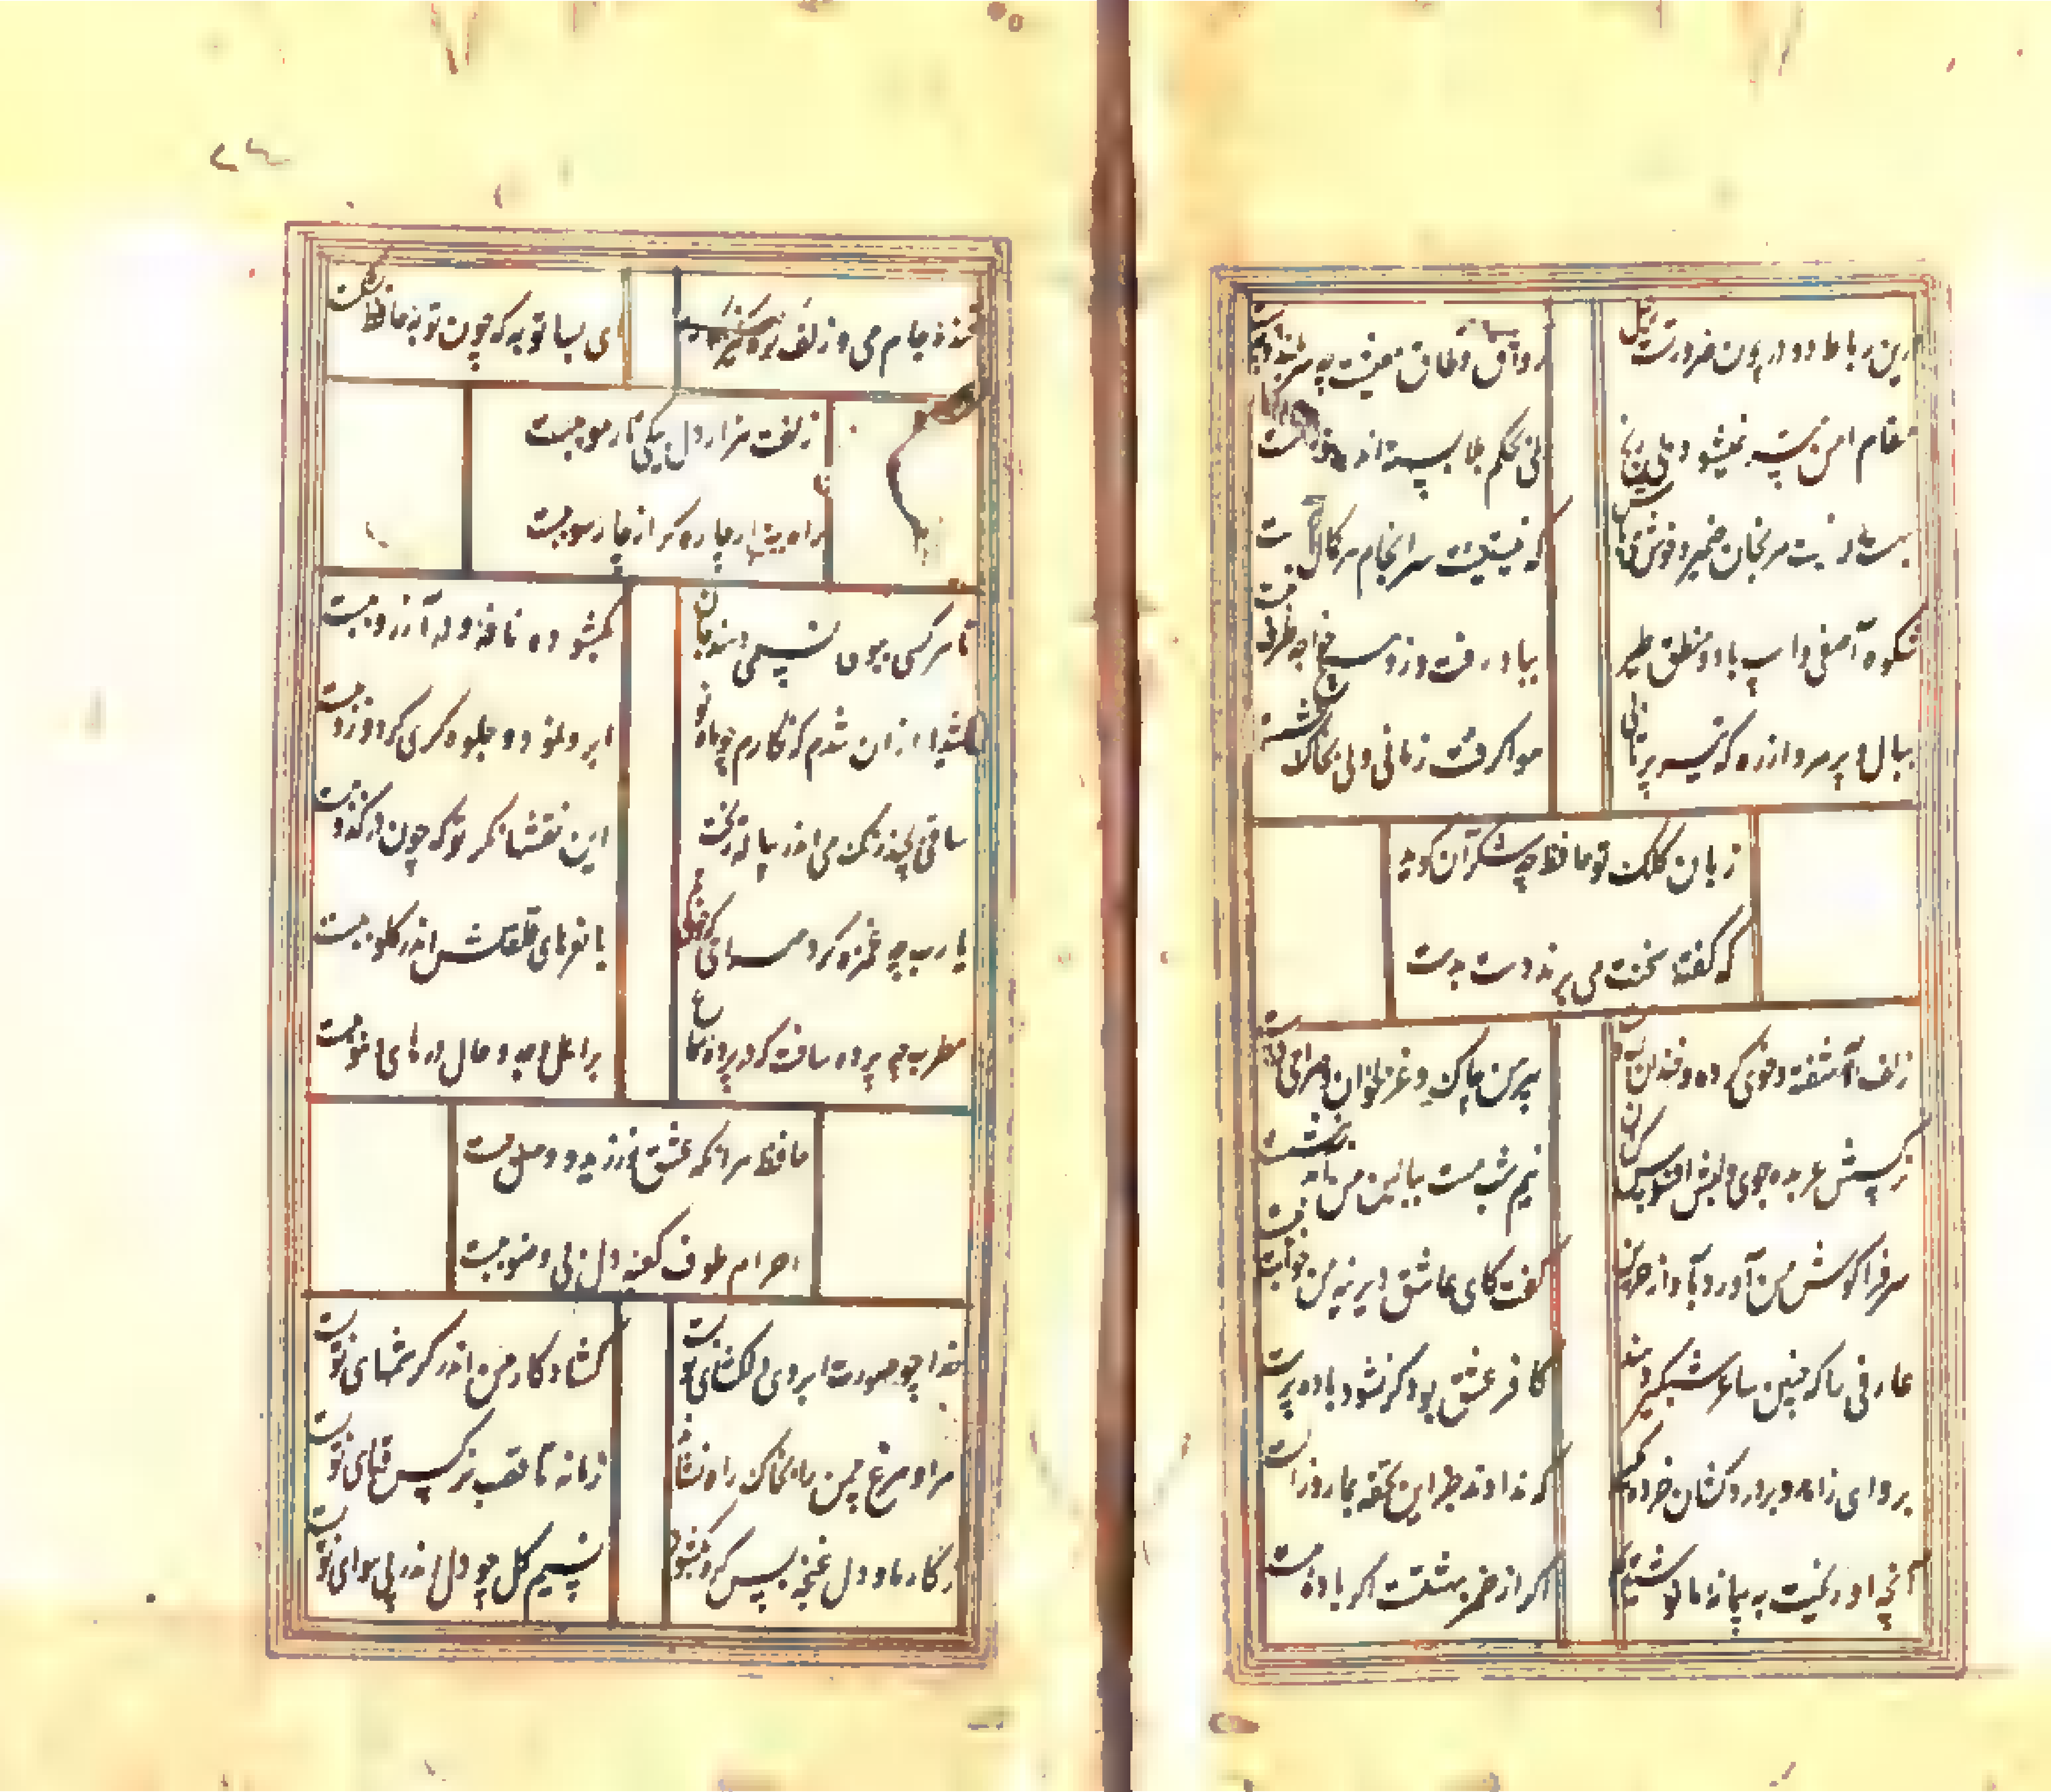 ازین رباط دو در چون ضرورتست رحیل
رواق و طاق معیشت چه سربلند و چه پست
مقام امن نمیشود میسر بی رنج
بلی بحکم بلا بسته‌اند
بهست و نیست مرنجان ضمیر و خوش میباش
که نیستیست سرانجام هر کمال که هست
شکوه آصفی و اسپ باد و منطق طیر
بباد رفت و زو خواجه هیچ طرف نبست
ببال و پر مرو از ره که تیر پرتابی
هوا گرفت زمانی ولی بخاک نشست
زبان کلک تو حافظ چه شکر آن گوید
که گفته سخنت می برند دست بدست
زلف آشفته و خوی کرده و خندان لب و مست
پیرهن چاک و غزلخوان و صراحی در دست
نرکسش عربده جوی و لبش افسوس کنان
نیم شب مست ببالین من آمد بنشست
سر فرا گوش من آورد و بآواز حزین
گفت کای عاشق دیرینه من خوابت هست
عارفی را که چنین ساغر شبگیر دهند
کافر عشق بود گر نشود باده پرست
برو ای زاهد و بر درد کشان خرده مگیر
که ندادند جز این تحفه بما روز الست
آنچه او ریخت به پیمانه ما نوشیدیم
اگر از خمر بهشتست اگر باده مست
۲۴
خنده جام می و زلف گره گیر نگار
ای بسا توبه که چون توبه حافظ بشکست
زلفت هزار دل بیکی تار مو ببست
راه هزار چاره گر از چار سو ببست
تا هر کسی ببوی نسیمی دهند جان
بگشود نافه و در آرزو ببست
شیدا از آن شدم که نگارم چو ماه نو
ابرو نمود و جلوه گری کرد و رو ببست
ساقی بچند رنگ می اندر پیاله ریخت
این نقشها نگر که چه خوش در کدو ببست
یا رب چه غمزه کرد صراحی که خون خم
با نعرهای قلقلش اندر گلو ببست
مطرب چه پرده ساخت که در پرده سماع
بر اهل وجد و حال در های و هو ببست
حافظ هر انکه عشق نورزید و وصل خواست
احرام طوف کعبه دل بی وضو ببست
خدا چو صورت ابروی دلگشای تو بست
گشاد کار من اندر کرشمهای تو بست
مرا و مرغ چمن را بخاک راه نشاند
زمانه تا قصب نرکس قبای تو بست
ز کار ما و دل غنچه بس گره بگشود
نسیم گل چو دل اندر پی هوای تو بست